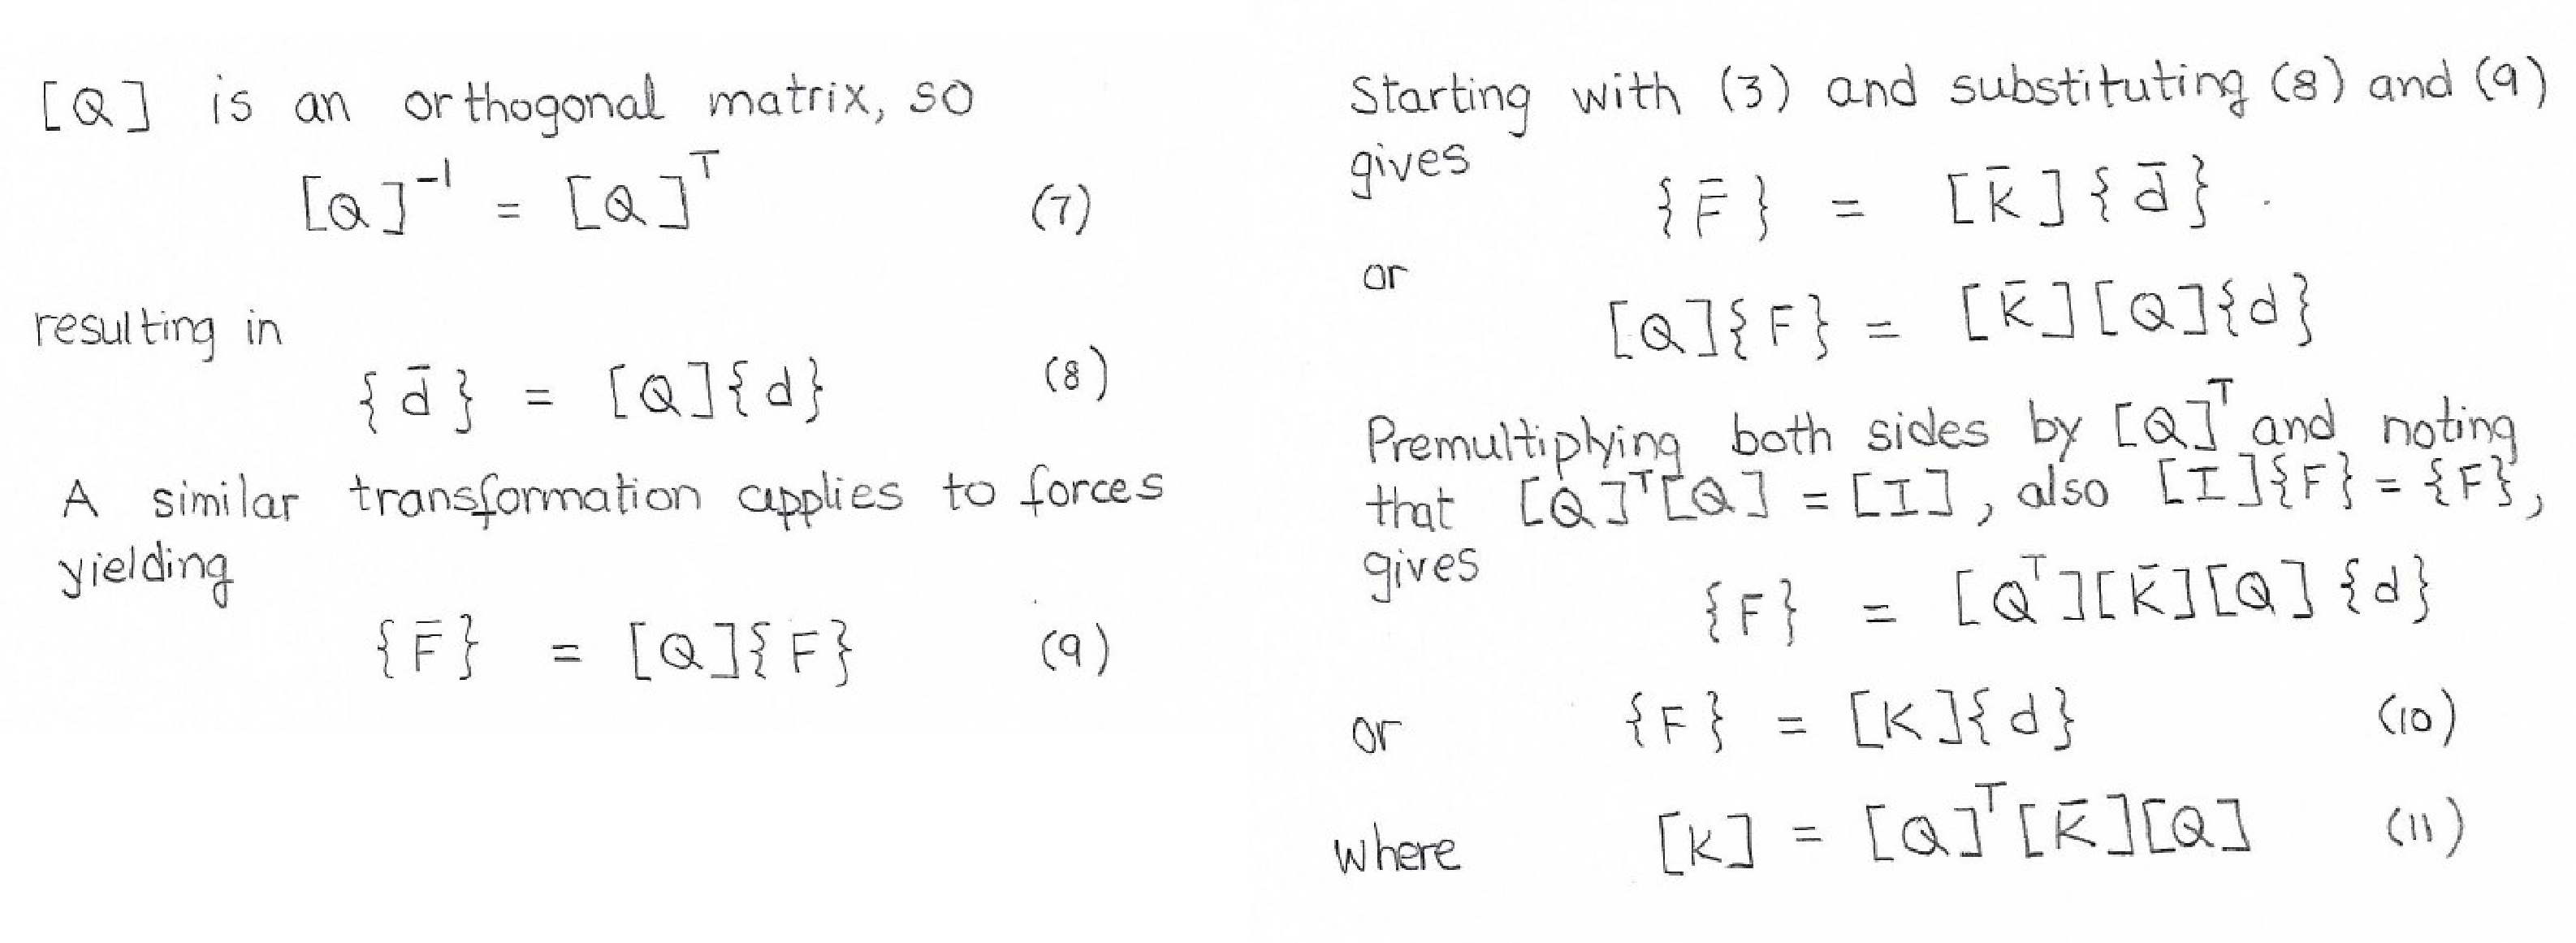 [Q] is an orthogonal matrix, so
[Q]⁻¹ = [Q]ᵀ (7)
resulting in
{d̄} = [Q]{d} (8)
A similar transformation applies to forces
yielding
{F̄} = [Q]{F} (9)
Starting with (3) and substituting (8) and (9)
gives
{F̄} = [k̄]{d̄}.
or
[Q]{F} = [k̄][Q]{d}
Premultiplying both sides by [Q]ᵀ and noting
that [Q]ᵀ[Q] = [I], also [I]{F} = {F},
gives
{F} = [Qᵀ][k̄][Q]{d}
or {F} = [K]{d} (10)
where [k] = [Q]ᵀ[k̄][Q] (11)